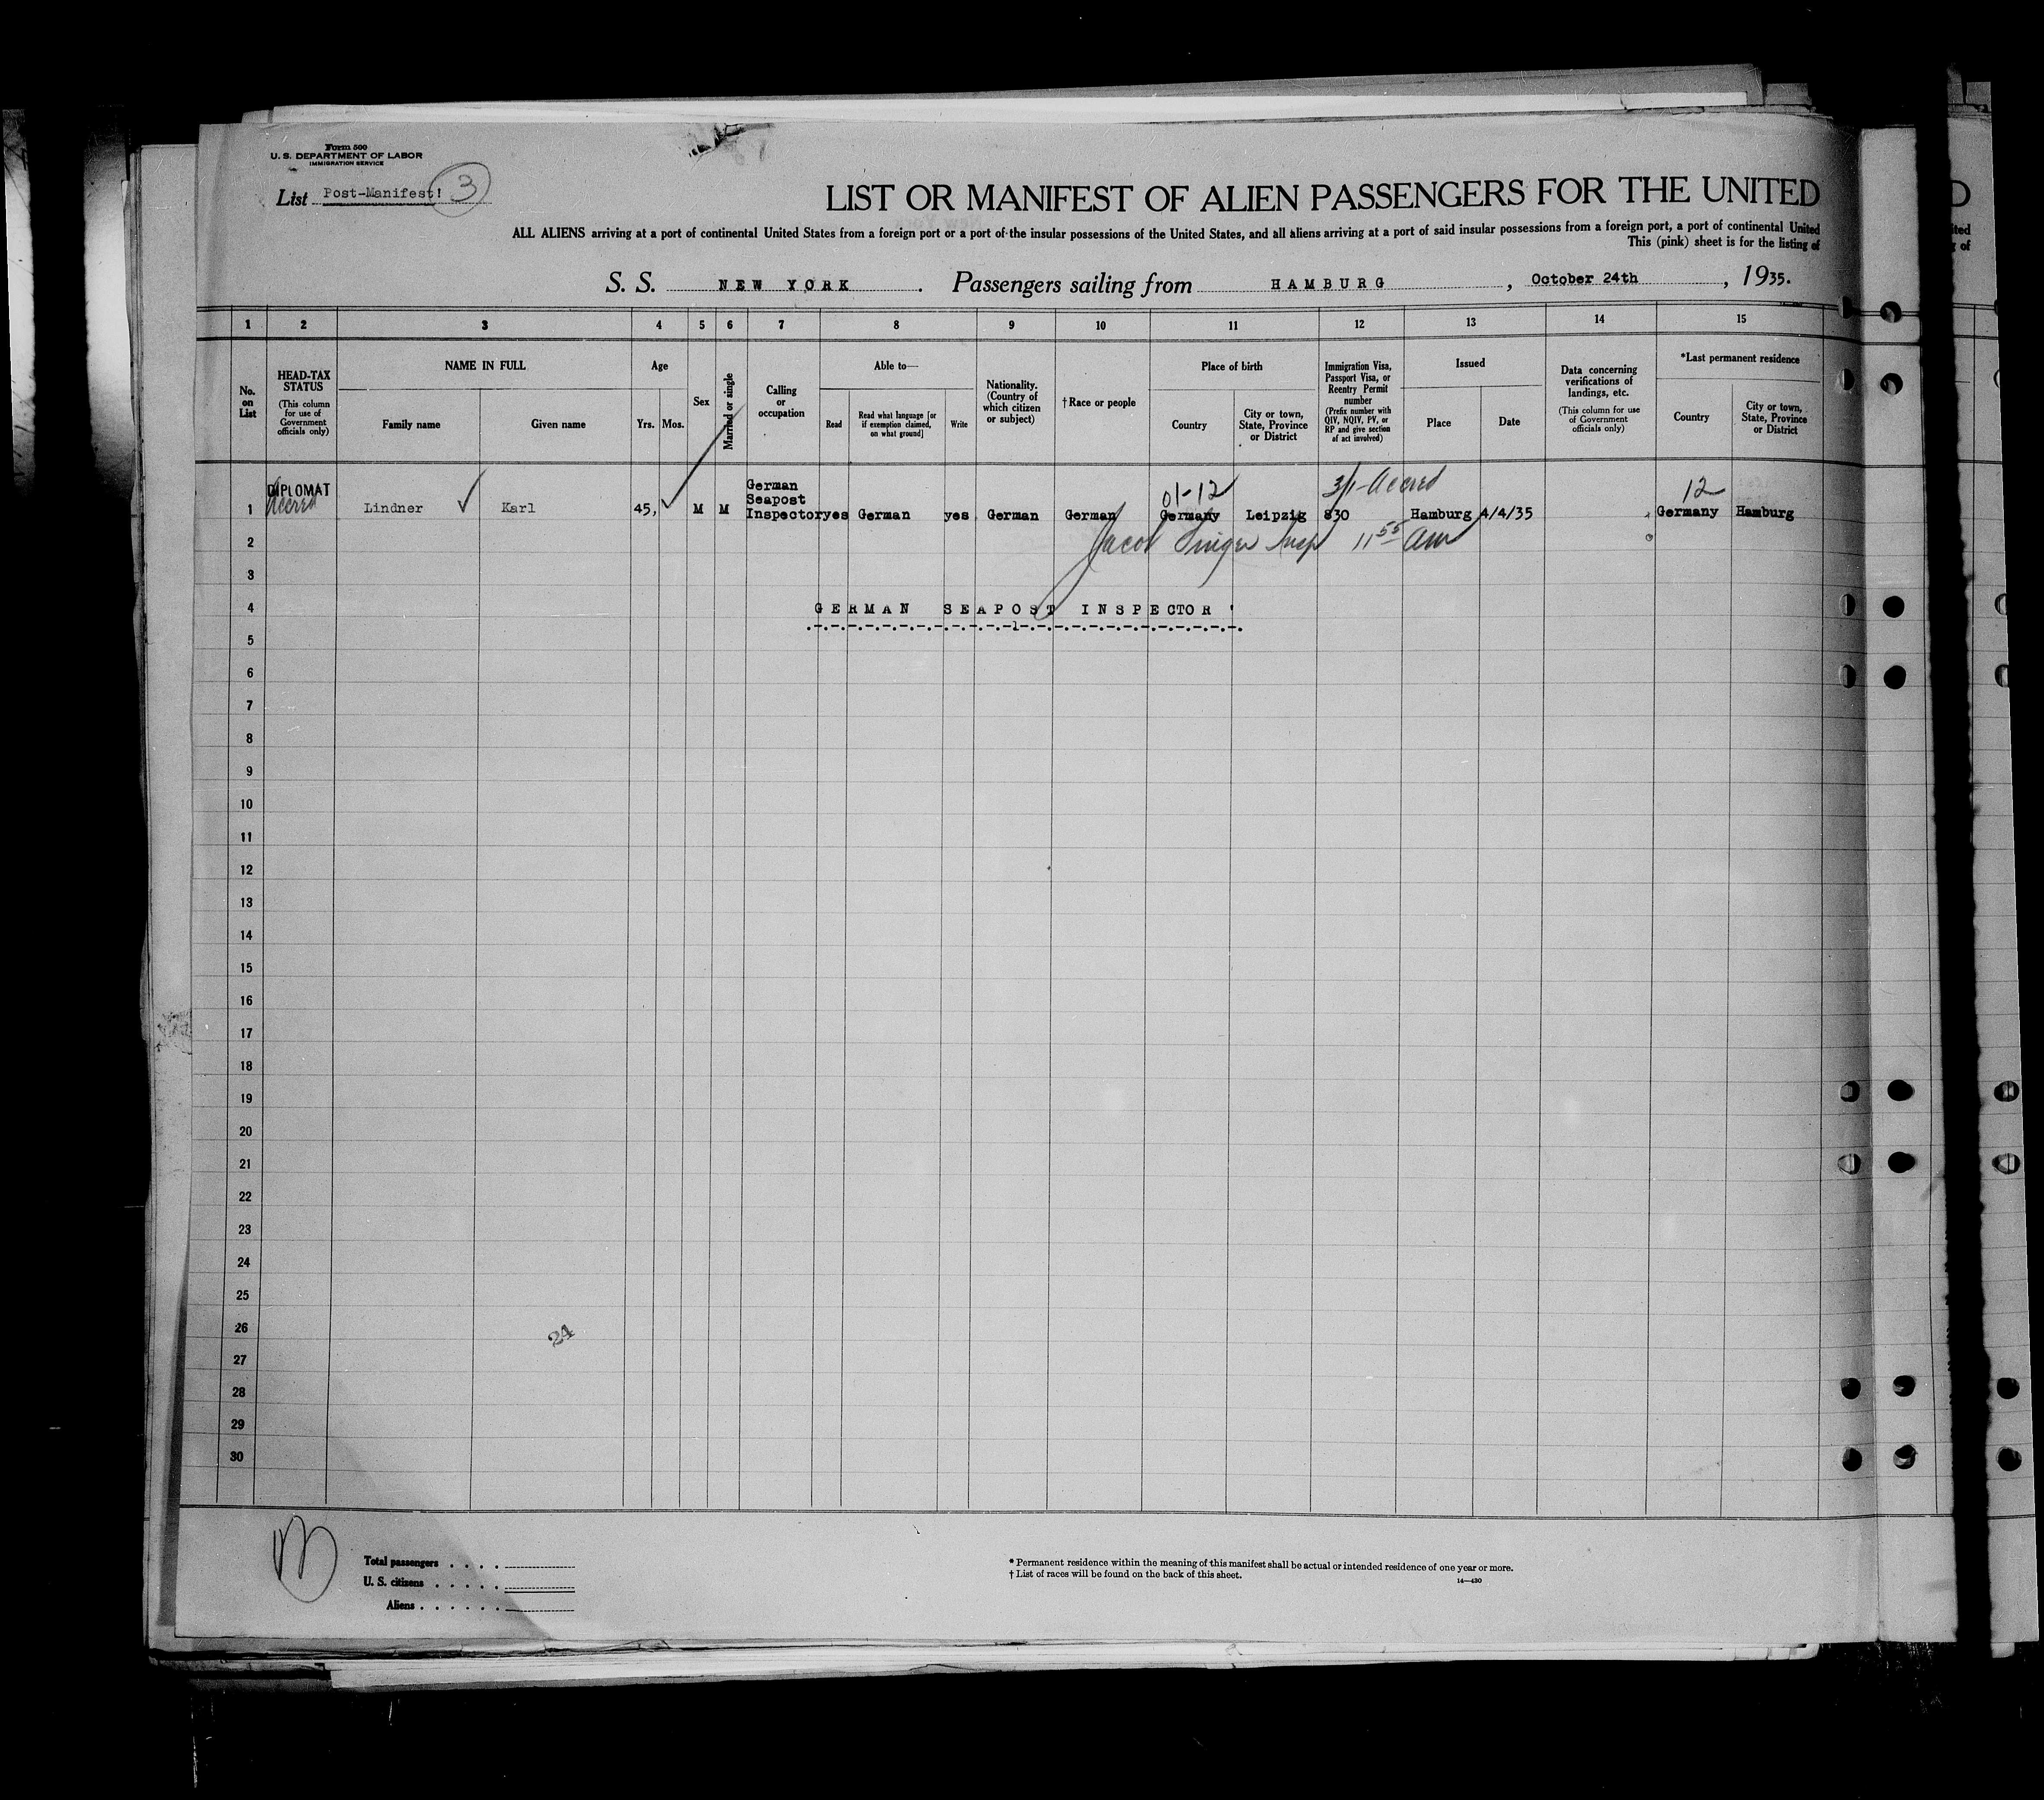 Form 500
U. S. DEPARTMENT OF LABOR
IMMIGRATION SERVICE
List Post-Manifest! 3
LIST OR MANIFEST OF ALIEN PASSENGERS FOR THE UNITED
ALL ALIENS arriving at a port of continental United States from a foreign port or a port of the insular possessions of the United States, and all aliens arriving at a port of said insular possessions from a foreign port, a port of continental United
This (pink) sheet is for the listing of
S. S. NEW YORK . Passengers sailing from HAMBURG , October 24th , 1935.
1 2 3 4 5 6 7 8 9 10 11 12 13 14 15
No. on List
HEAD-TAX STATUS (This column for use of Government officials only)
NAME IN FULL
Family name
Given name
Age
Yrs. Mos.
Sex
Married or single
Calling or occupation
Able to—
Read
Read what language [or if exemption claimed, on what ground]
Write
Nationality. (Country of which citizen or subject)
†Race or people
Place of birth
Country
City or town, State, Province or District
Immigration Visa, Passport Visa, or Reentry Permit number (Prefix number with QIV, NQIV, PV, or RP and give section of act involved)
Issued
Place
Date
Data concerning verifications of landings, etc. (This column for use of Government officials only)
*Last permanent residence
Country
City or town, State, Province or District
DIPLOMAT
Accred
01-12
3/1-Accred
12
1 Lindner Karl 45, M M German Seapost Inspector yes German yes German German Germany Leipzig 830 Hamburg 4/4/35 Germany Hamburg
2 Jacob Singer Insp 11 55 am
3
4 GERMAN SEAPOST INSPECTOR
5
6
7
8
9
10
11
12
13
14
15
16
17
18
19
20
21
22
23
24
25
26
24
27
28
29
30
Total passengers
U. S. citizens
Aliens
* Permanent residence within the meaning of this manifest shall be actual or intended residence of one year or more.
† List of races will be found on the back of this sheet.
14—430